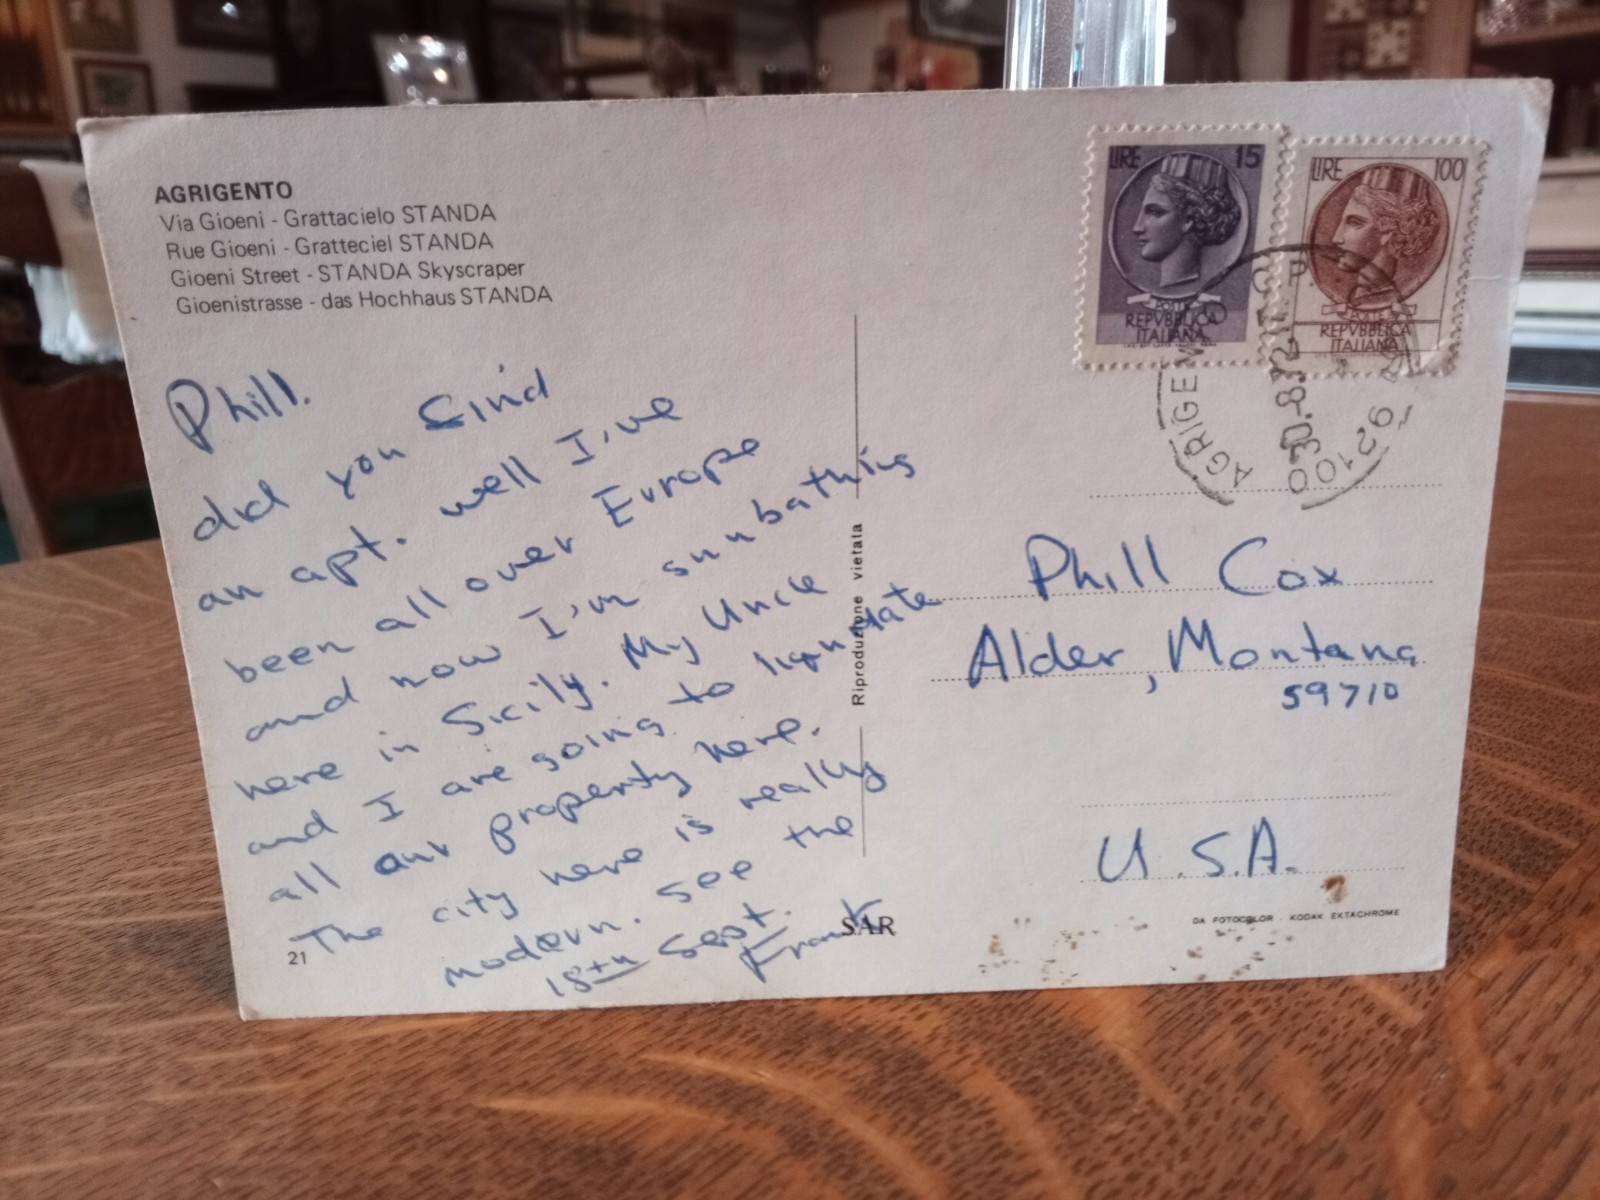 AGRIGENTO
Via Gioeni - Grattacielo STANDA
Rue Gioeni - Gratteciel STANDA
Gioeni Street - STANDA Skyscraper
Gioenistrasse - das Hochhaus STANDA
Phill.
did you find
an apt. well I've
been all over Europe
and now I'm sunbathing
here in Sicily. My Uncle
and I are going to liquidate
all our property here.
The city here is really
modern. See the
18th Sept.
Frank
21
Riproduzione vietata
SAR
LIRE 15
POSTE
REPVBBLICA
ITALIANA
LIRE 100
POSTE
REPVBBLICA
ITALIANA
92100 AGRIGEN
30.-8.
Phill Cox
Alder, Montana
59710
U.S.A.
DA FOTOCOLOR - KODAK EKTACHROME